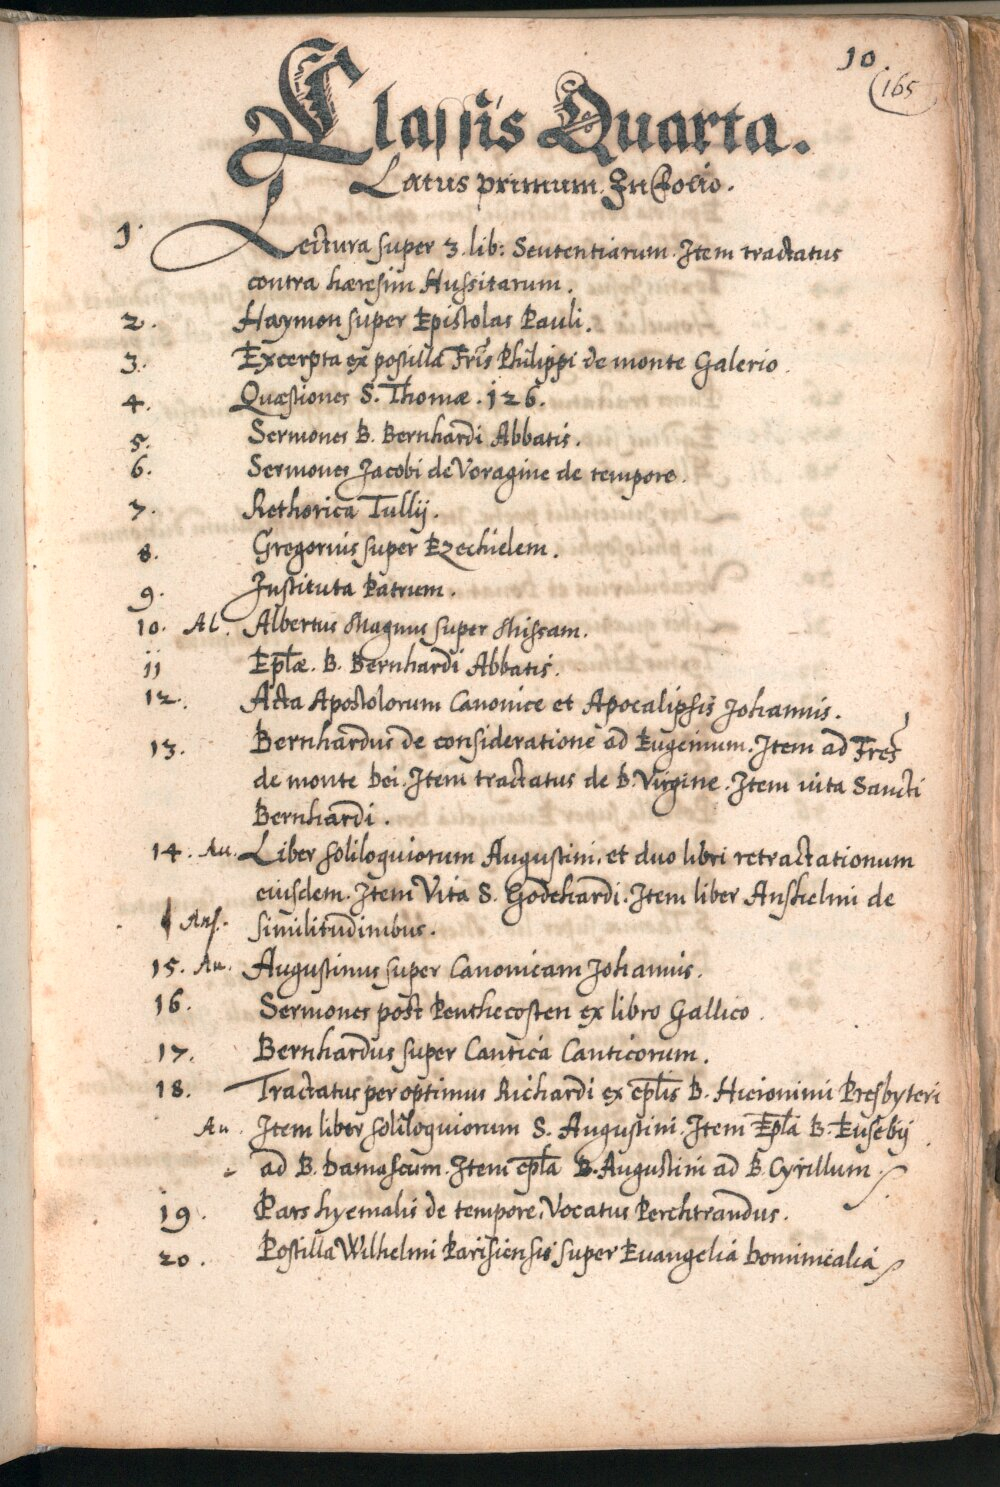 10.
165
Classis Quarta.
Latus primum. In Folio.
1. Lectura super 3. lib: Sententiarum. Item tractatus
contra hæresim Hussitarum.
2. Haymon super Epistolas Pauli.
3. Excerpta ex postilla Fris Philippi de monte Galerio.
4. Quæstiones S. Thomæ. 126.
5. Sermones B. Bernhardi Abbatis.
6. Sermones Jacobi de Voragine de tempore.
7. Rethorica Tullij.
8. Gregorius super Ezechielem.
9. Instituta Patrum.
10. Al. Albertus Magnus super Missam.
11 Eplæ. B. Bernhardi Abbatis.
12. Acta Apostolorum Canonice et Apocalipsis Johannis.
13. Bernhardus de consideratione ad Eugenium. Item ad Fres
de monte Dei. Item tractatus de B. Virgine. Item vita Sancti
Bernhardi.
14. Au. Liber soliloquiorum Augustini, et duo libri retractationum
eiusdem. Item Vita S. Godehardi. Item liber Anshelmi de
Ans. similitudinibus.
15. Au. Augustinus super Canonicam Johannis.
16. Sermones post Penthecosten ex libro Gallico.
17. Bernhardus super Cantica Canticorum.
18. Tractatus per optimus Richardi ex eplis B. Hieronimi Presbyteri
Au. Item liber soliloquiorum S. Augustini. Item Epla B. Eusebij
ad B. Damascum. Item epla B. Augustini ad B. Cyrillum
19. Pars hyemalis de tempore, Vocatus Perchtrandus.
20. Postilla Wilhelmi Parisiensis super Euangelia Dominicalia